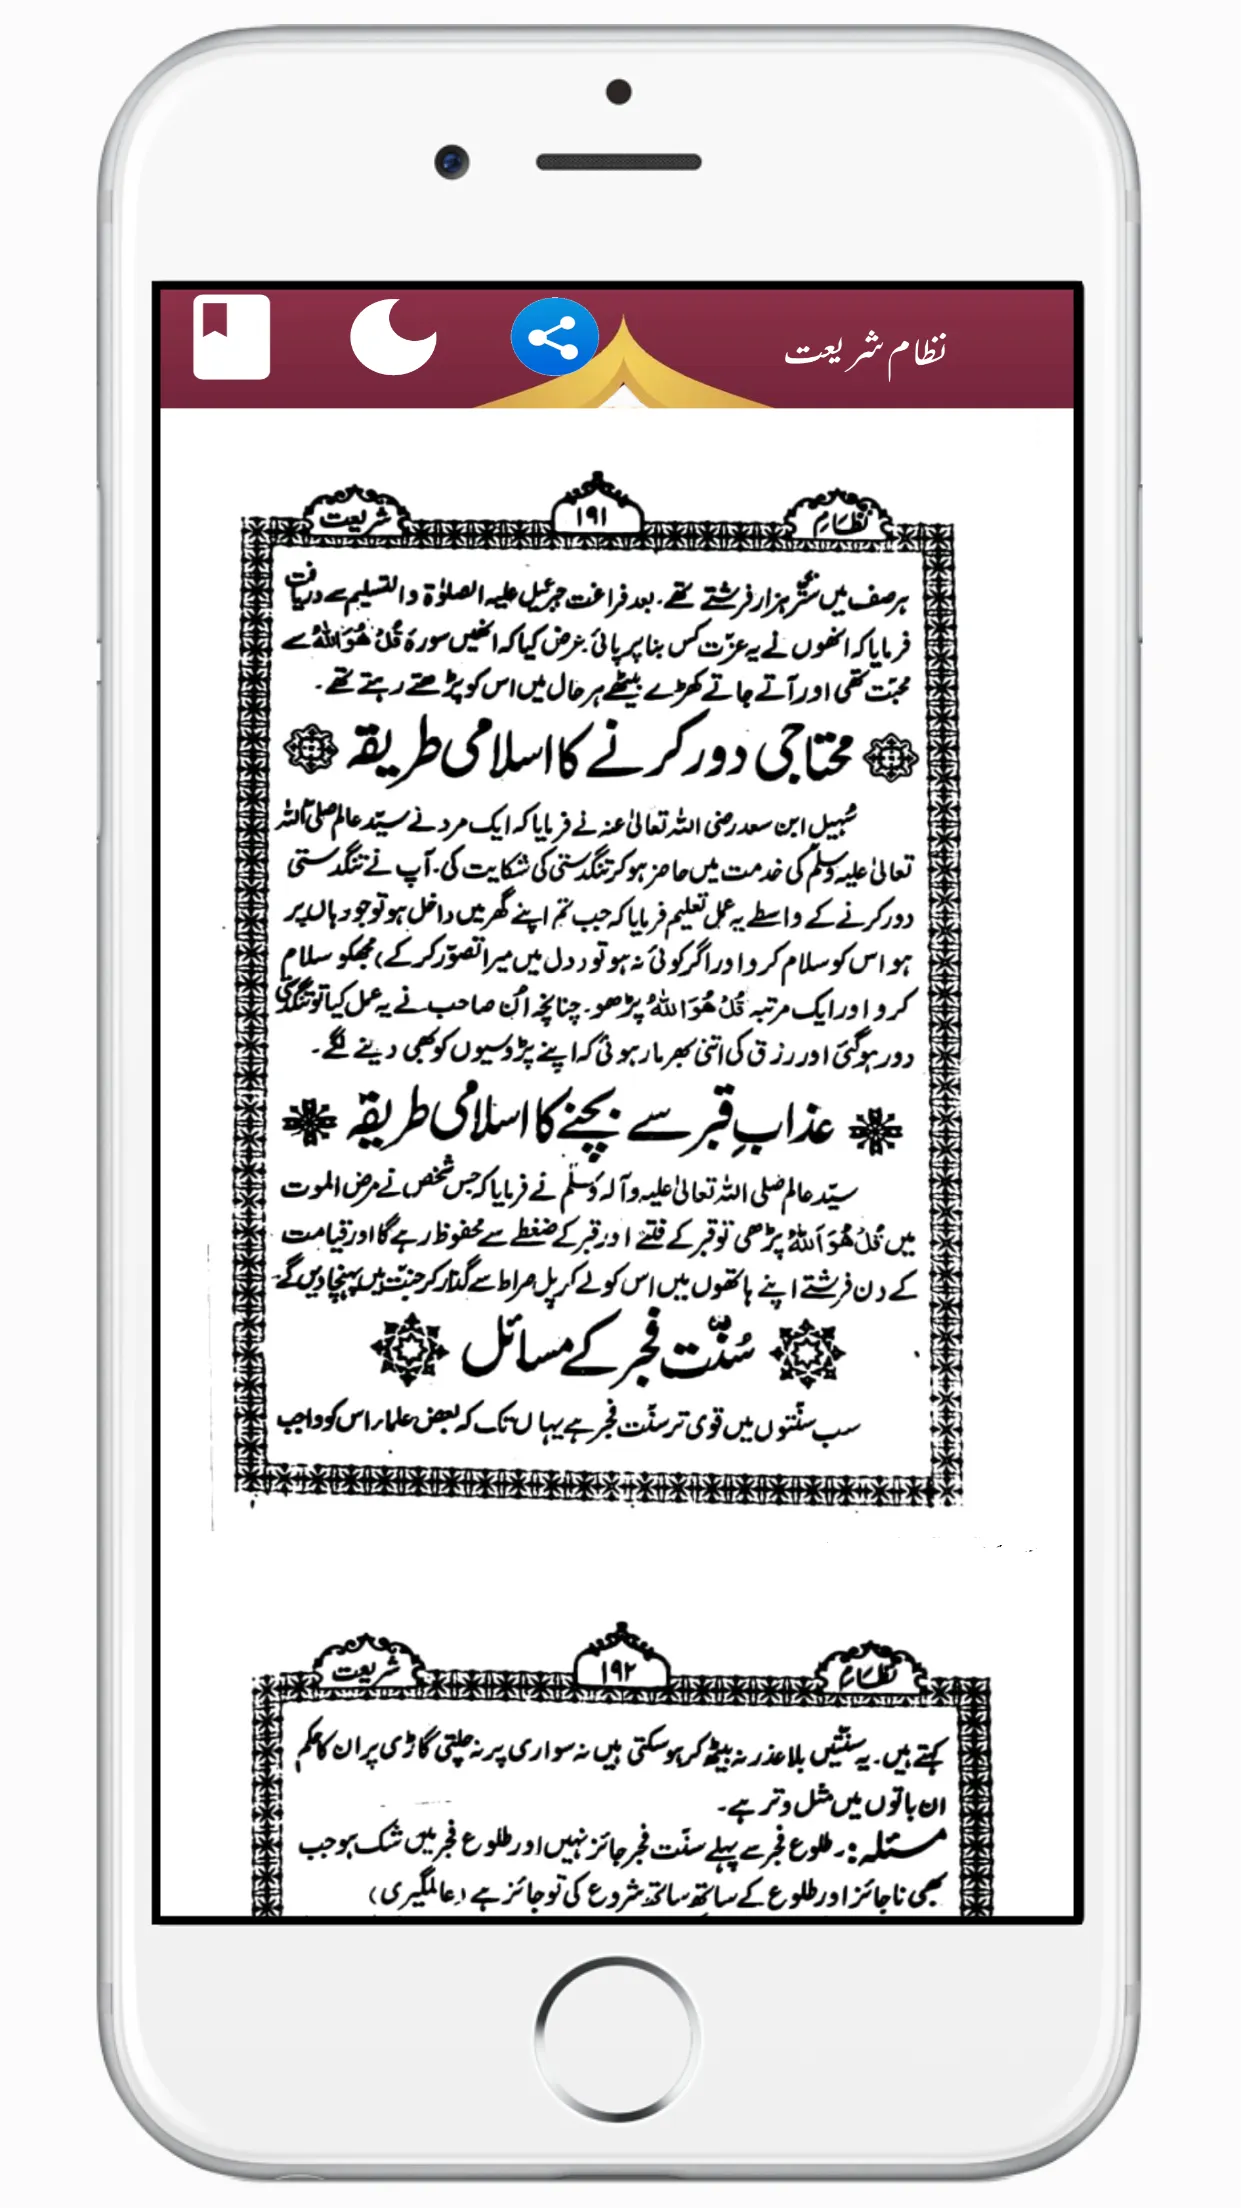 نظام شریعت
نظام ۱۹۱ شریعت
ہر صف میں ستر ہزار فرشتے تھے۔ بعد فراغت جبرئیل علیہ الصلوٰۃ والتسلیم سے دریافت
فرمایا کہ انھوں نے یہ عزت کس بنا پر پائی عرض کیا کہ انھیں سورۃ قُلْ هُوَ اللہُ سے
محبت تھی اور آتے جاتے کھڑے بیٹھے ہر حال میں اس کو پڑھتے رہتے تھے۔
محتاجی دور کرنے کا اسلامی طریقہ
سُہیل ابن سعد رضی اللہ تعالیٰ عنہ نے فرمایا کہ ایک مرد نے سیّد عالم صلی اللہ
تعالیٰ علیہ وسلم کی خدمت میں حاضر ہو کر تنگدستی کی شکایت کی۔ آپ نے تنگدستی
دور کرنے کے واسطے یہ عمل تعلیم فرمایا کہ جب تم اپنے گھر میں داخل ہو تو جو وہاں پر
ہو اس کو سلام کرو اور اگر کوئی نہ ہو تو (دل میں میرا تصوّر کر کے) مجھکو سلام
کرو اور ایک مرتبہ قُلْ هُوَ اللہُ پڑھو۔ چنانچہ اُن صاحب نے یہ عمل کیا تو تنگدستی
دور ہوگئی اور رزق کی اتنی بھرمار ہوئی کہ اپنے پڑوسیوں کو بھی دینے لگے۔
عذابِ قبر سے بچنے کا اسلامی طریقہ
سیّد عالم صلی اللہ تعالیٰ علیہ وآلہ وسلم نے فرمایا کہ جس شخص نے مرض الموت
میں قُلْ هُوَ اَللہُ پڑھی تو قبر کے فتنے اور قبر کے ضغطے سے محفوظ رہے گا اور قیامت
کے دن فرشتے اپنے ہاتھوں میں اس کو لے کر پل صراط سے گذار کر جنّت میں پہنچا دیں گے۔
سُنّت فجر کے مسائل
سب سنّتوں میں قوی تر سنّت فجر ہے یہاں تک کہ بعض علماء اس کو واجب
نظام ۱۹۲ شریعت
کہتے ہیں۔ یہ سنّتیں بلا عذر نہ بیٹھ کر ہو سکتی ہیں نہ سواری پر نہ چلتی گاڑی پر ان کا حکم
ان باتوں میں مثل وتر ہے۔
مسئلہ:۔ طلوع فجر سے پہلے سنّت فجر جائز نہیں اور طلوع فجر میں شک ہو جب
بھی ناجائز اور طلوع کے ساتھ ساتھ شروع کی تو جائز ہے (عالمگیری)